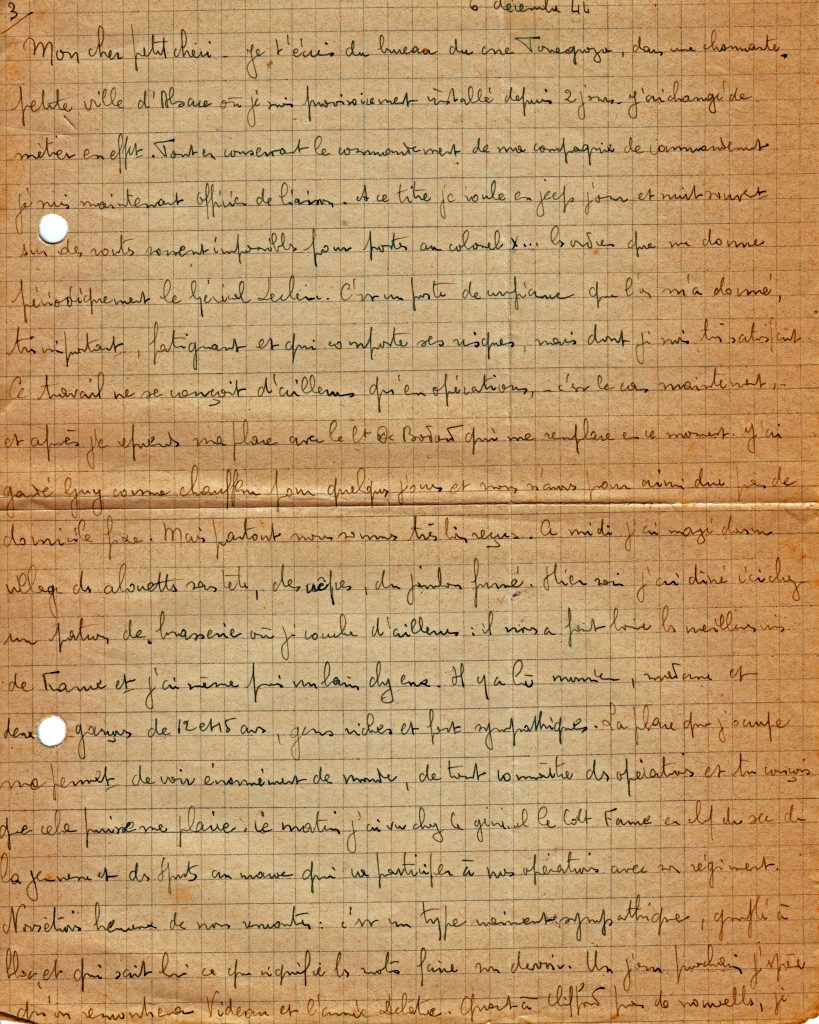 3
6 décembre 44
Mon cher petit chéri - Je t'écris du bureau du cne, dans une charmante
petite ville d'Alsace où je suis provisoirement installé depuis 2 jours. J'ai changé de
métier en effet. Tout en conservant le commandement de ma compagnie de commandement
je suis maintenant officier de liaison. A ce titre je roule en jeep jour et nuit souvent
sur des routes souvent impossibles pour porter au colonel X... les ordres que me donne
périodiquement le Général Leclerc. C'est un poste de confiance que l'on m'a donné,
très important, fatiguant et qui comporte ses risques, mais dont je suis très satisfait.
Ce travail ne se conçoit d'ailleurs qu'en opérations, - c'est le cas maintenant, -
et après je reprends ma place avec le Lt De qui me remplace en ce moment. J'ai
gardé Guy comme chauffeur pour quelques jours et nous n'avons pour ainsi dire pas de
domicile fixe. Mais partout nous sommes très bien reçus. A midi j'ai mangé dans un
village des alouettes sans tête, des crêpes, du jambon fumé. Hier soir j'ai dîné ici chez
un patron de brasserie où je couche d'ailleurs : il nous a fait boire les meilleurs vins
de France et j'ai même pris un bain chez eux. Il y a là monsieur, madame et
deux garçons de 12 et 15 ans, gens riches et fort sympathiques. La place que j'occupe
me permet de voir énormément de monde, de tout connaître des opérations et tu conçois
que cela puisse me plaire. Ce matin j'ai vu chez le général le Colt en chef du de
la jeunesse et des Sports au maroc qui va participer à nos opérations avec son régiment.
Nous étions heureux de nous rencontrer : c'est un type vraiment sympathique, gonflé à
bloc et qui sait lui ce que signifie les mots faire son devoir. Un jour prochain j'espère
qu'on rencontrera Videau et l'armée Delattre. Quant à Clifford pas de nouvelles, je